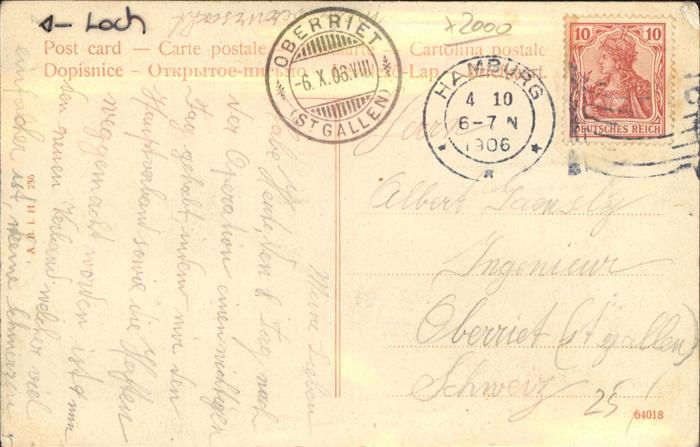 ← Loch
x2000
Post card — Carte postale
Cartolina postal
Dopisnice — Открытое письмо
OBERRIET
-6.X.06.VIII-
(ST GALLEN)
HAMBURG
4 10
6-7 N
1906
10 10
DEUTSCHES REICH
Herrn
Albert Gaensly
Ingenieur
Oberriet (St gallen)
Schweiz
25
64018
A. B. i. H. 236
Meine Lieben
habe Heute, den 8. Tag nach
der Operation einen wichtigen
Tag gehabt, indem mir den
Hauptverband sowie die Haften
weggemacht worden ist &
den neuen Verband welcher viel
einfacher ist, meine Schmerzen